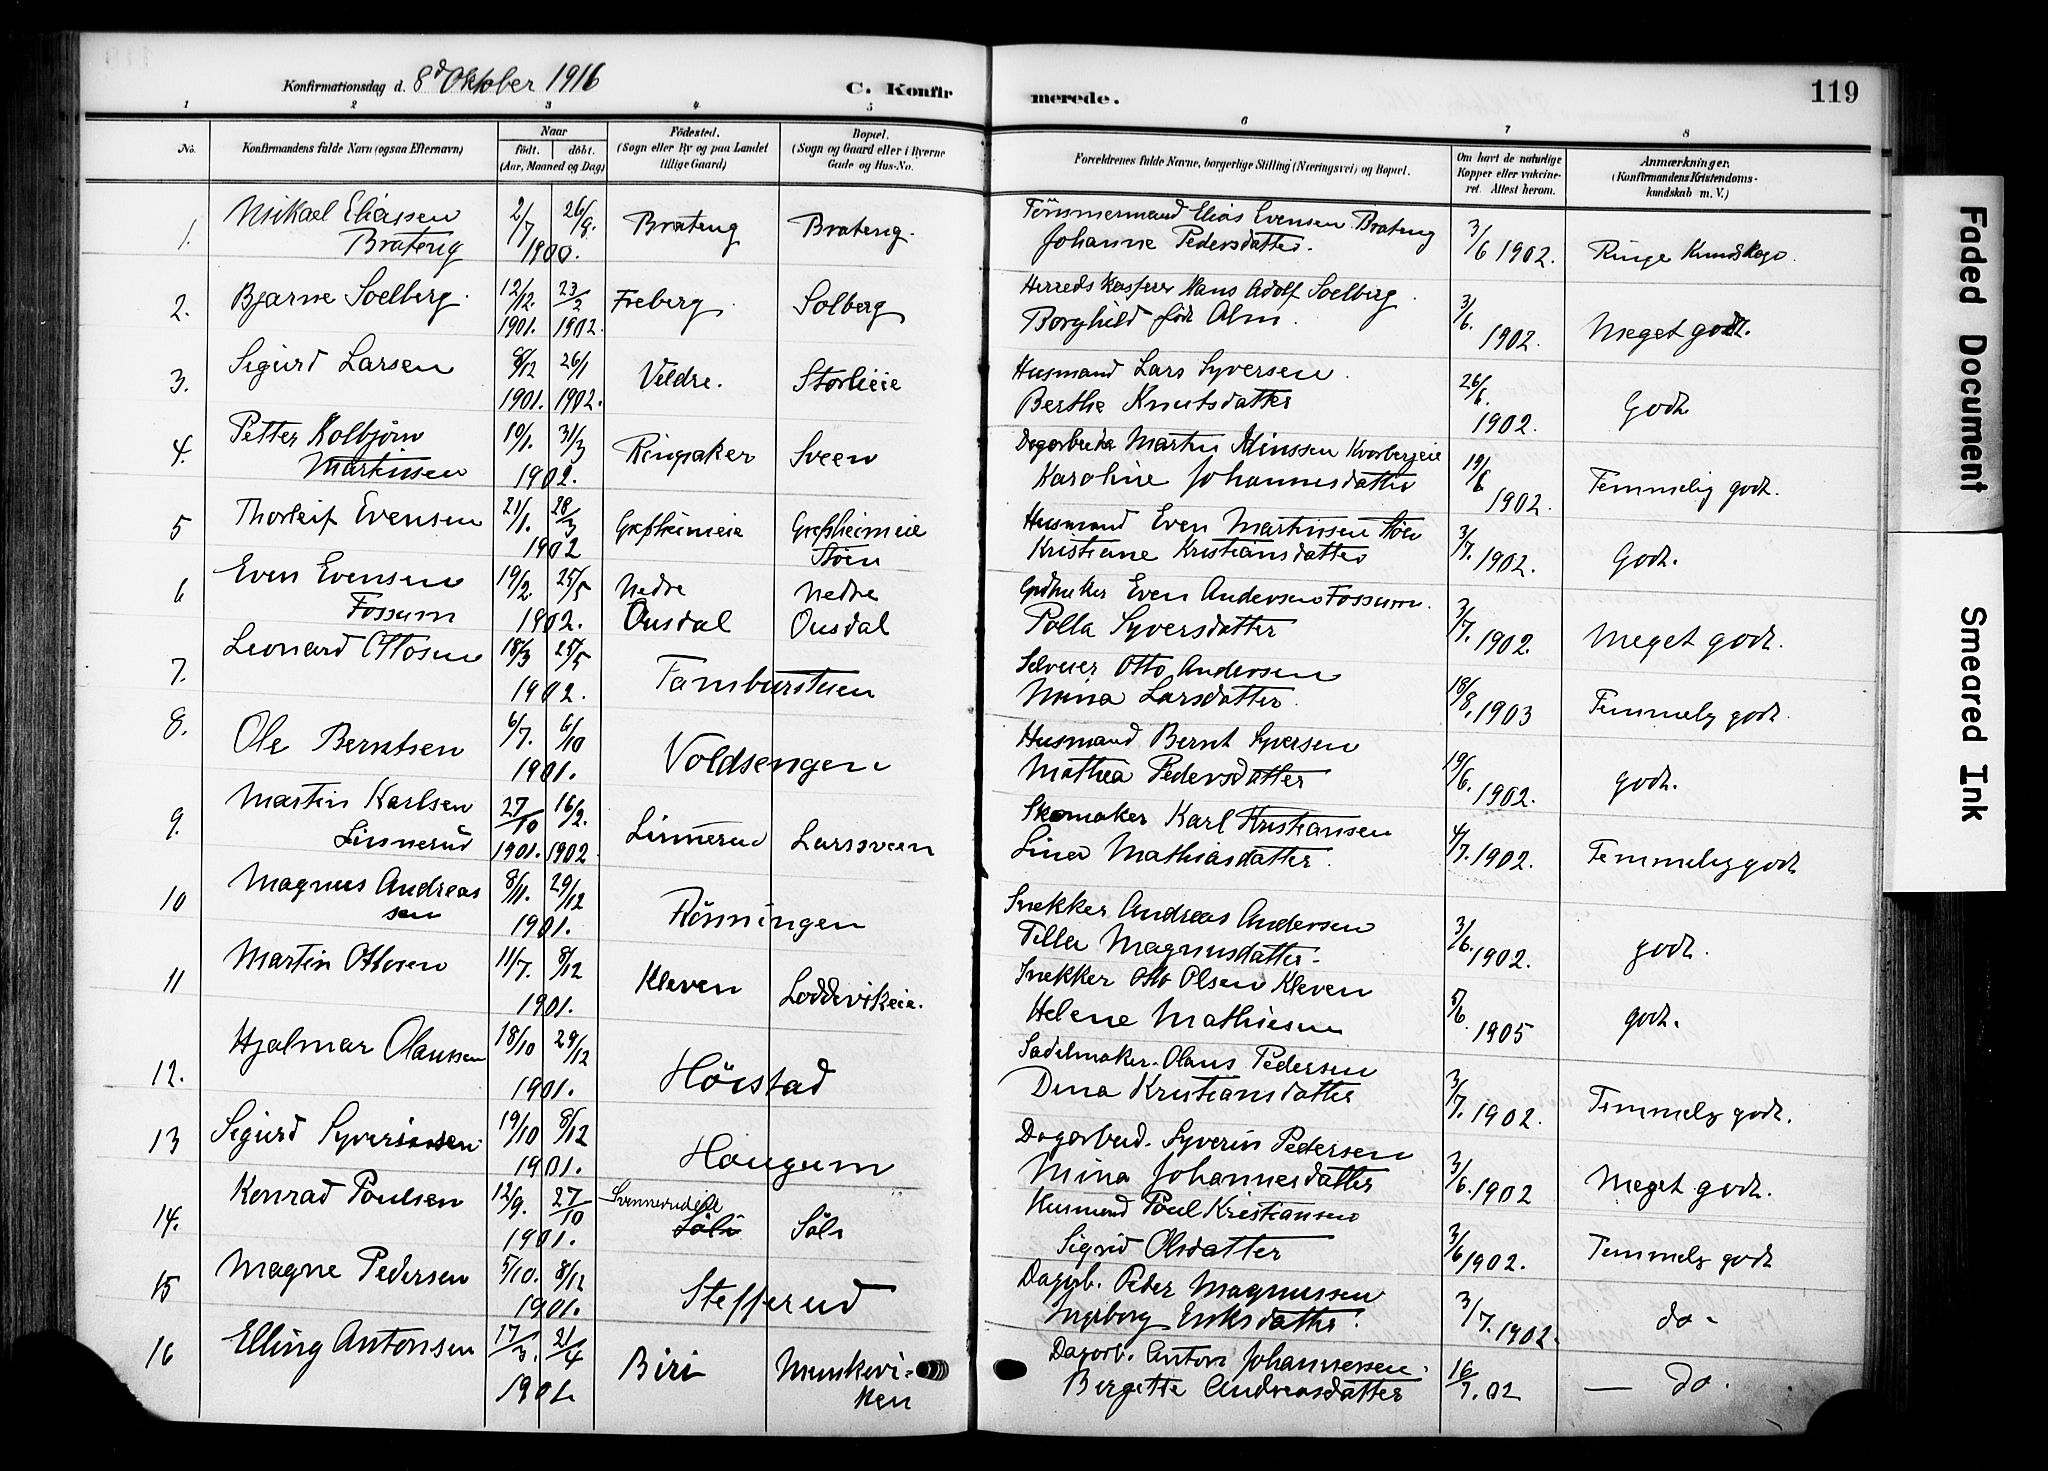 Konfirmationsdag d. 8d Oktober 1916
C. Konfirmerede.
119
1 2 3 4 5 6 7 8
No.
Konfirmandens fulde Navn (ogsaa Efternavn)
Naar
født. døbt.
(Aar, Maaned og Dag)
Fødested.
(Sogn eller By og paa Landet
tillige Gaard)
Bopæl.
(Sogn og Gaard eller i Byerne
Gade og Hus-No.
Forældrenes fulde Navne, borgerlige Stilling (Næringsvei) og Bopæl.
Om havt de naturlige
Kopper eller vakcineret. Attest herom.
Anmærkninger.
(Konfirmandens Kristendomskundskab m. V.)
1. Mikael Eliassen Brateng 2/7 26/8. 1900. Brateng Brateng. Tömmermand Elias Evensen Brateng
Johanne Pedersdatter. 3/6 1902. Ringe Kundskap.
2. Bjarne Soelberg. 12/12. 1901. 23/2 1902. Freberg Solberg Herreds Kasserer Hans Adolf Soelberg.
Borghild föd Alm. 3/6. 1902. Meget godt.
3. Sigurd Larsen 8/12 1901. 26/1 1902. Veldre. Storlieie Husmand Lars Syversen.
Berthe Knutsdatter 26/6. 1902. Godt
4. Petter Kolbjörn Martinsen 10/1. 31/3 1902. Ringsaker Sveen Dagarbeider Martin
Karoline Johannesdatter 19/6 1902. Temmelig godt.
5 Thorleif Evensen 21/1. 28/3 1902 Gresheimeie Gresheimeie Stöen Husmand Even Martinsen Stöen
Kristiane Kristiansdatter 3/7. 1902. Godt.
6 Even Evensen Fossum 19/2. 25/5 1902. Nedre Ousdal Nedre Ousdal Even Andersen Fossum.
Polla Syversdatter 3/7. 1902. Meget godt.
7. Leonard Ottosen 18/3 25/5 1902. Tamburstuen Selveier Otto Andersen
Mina Larsdatter. 18/8. 1903 Temmelig godt.
8. Ole Berntsen 6/7. 6/10 1901. Voldsengen Husmand Bernt Syversen
Mathea Pedersdatter 19/6. 1902. godt.
9. Martin Karlsen Linnerud 27/10 1901. 16/2. 1902 Linnerud Larssveen Skomaker Karl Kristiansen
Lina Mathiasdatter. 4/7. 1902. Temmelig godt
10 Magnus Andreassen 8/11. 29/12 1901. Rönningen Snekker Andreas Andersen
Tilla Magnusdatter. 3/6. 1902. godt.
11 Martin Ottosen 11/7. 8/12 1901. Kleven Loddevikeie. Snekker Otto Olsen Kleven
Helene Mathiesen 5/6. 1905 godt.
12. Hjalmar Olaussen 18/10 29/12 1901. Höistad Sadelmaker. Olaus Pedersen
Dina Kristiansdatter 3/7. 1902. Temmelig godt.
13 Sigurd Syverinsen 19/10 8/12 1901. Haugum Dagarbeid. Syverin Pedersen
Mina Johannesdatter 3/6. 1902 Meget godt.
14. Konrad Poulsen 12/9. 27/10 1901. Svennerudeie Söli Söli Husmand Poul Kristiansen
Sigrid Olsdatter 3/6 1902. Temmelig godt
15 Magne Pedersen 5/10. 8/12 1901. Stefferud Dagarb. Peder Magnussen
Ingeborg Eriksdatter. 3/7. 1902. do -
16 Elling Antonsen 17/3. 21/4 1901 Biri Munkeviken Dagarb. Anton Johannessen.
Bergitte Andreasdatter 16/7. 02 — do.
Faded Document
Smeared Ink